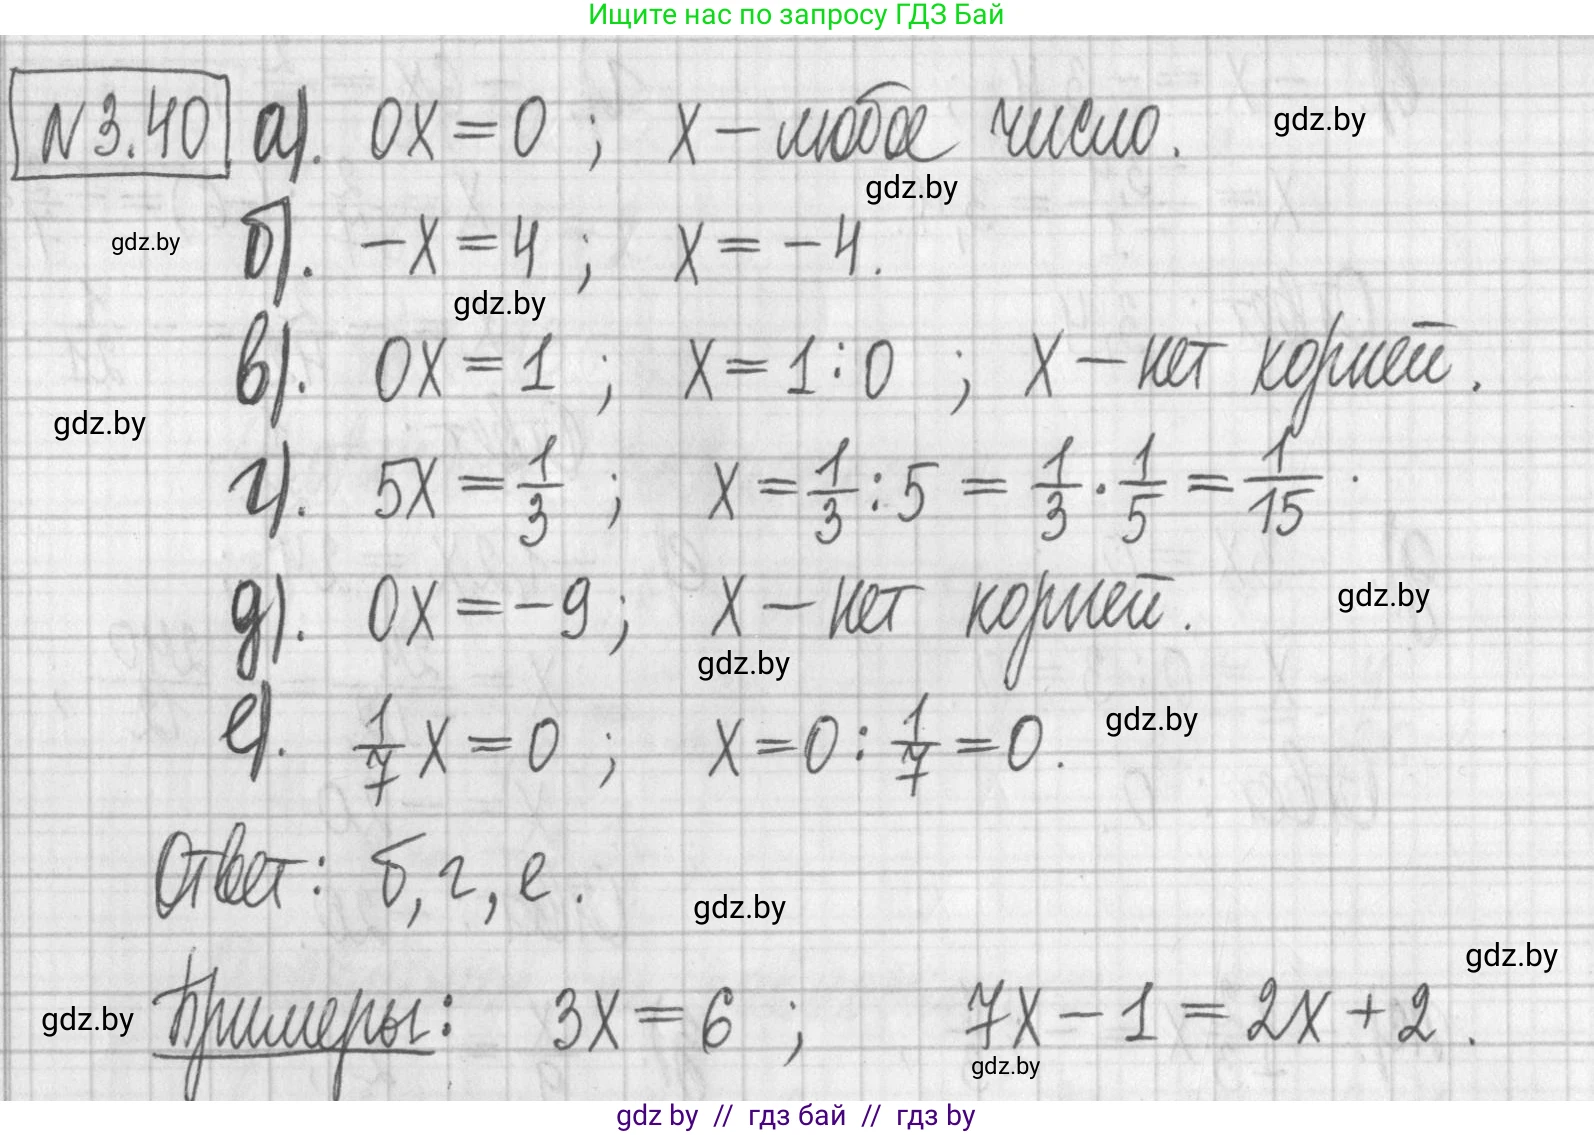 Ищите нас по запросу ГДЗ Бай
N 3.40 а). 0x = 0 ; x – любое число. gdz.by
gdz.by
gdz.by б). –x = 4 ; x = –4.
gdz.by
в). 0x = 1 ; x = 1 : 0 ; x – нет корней.
gdz.by
г). 5x = 1/3 ; x = 1/3 : 5 = 1/3 · 1/5 = 1/15 .
д). 0x = –9 ; x – нет корней. gdz.by
gdz.by
е). 1/7 x = 0 ; x = 0 : 1/7 = 0. gdz.by
Ответ: б, г, е.
gdz.by
gdz.by
gdz.by Примеры: 3x = 6 ; 7x – 1 = 2x + 2 .
gdz.by
gdz by // гдз бай // гдз by